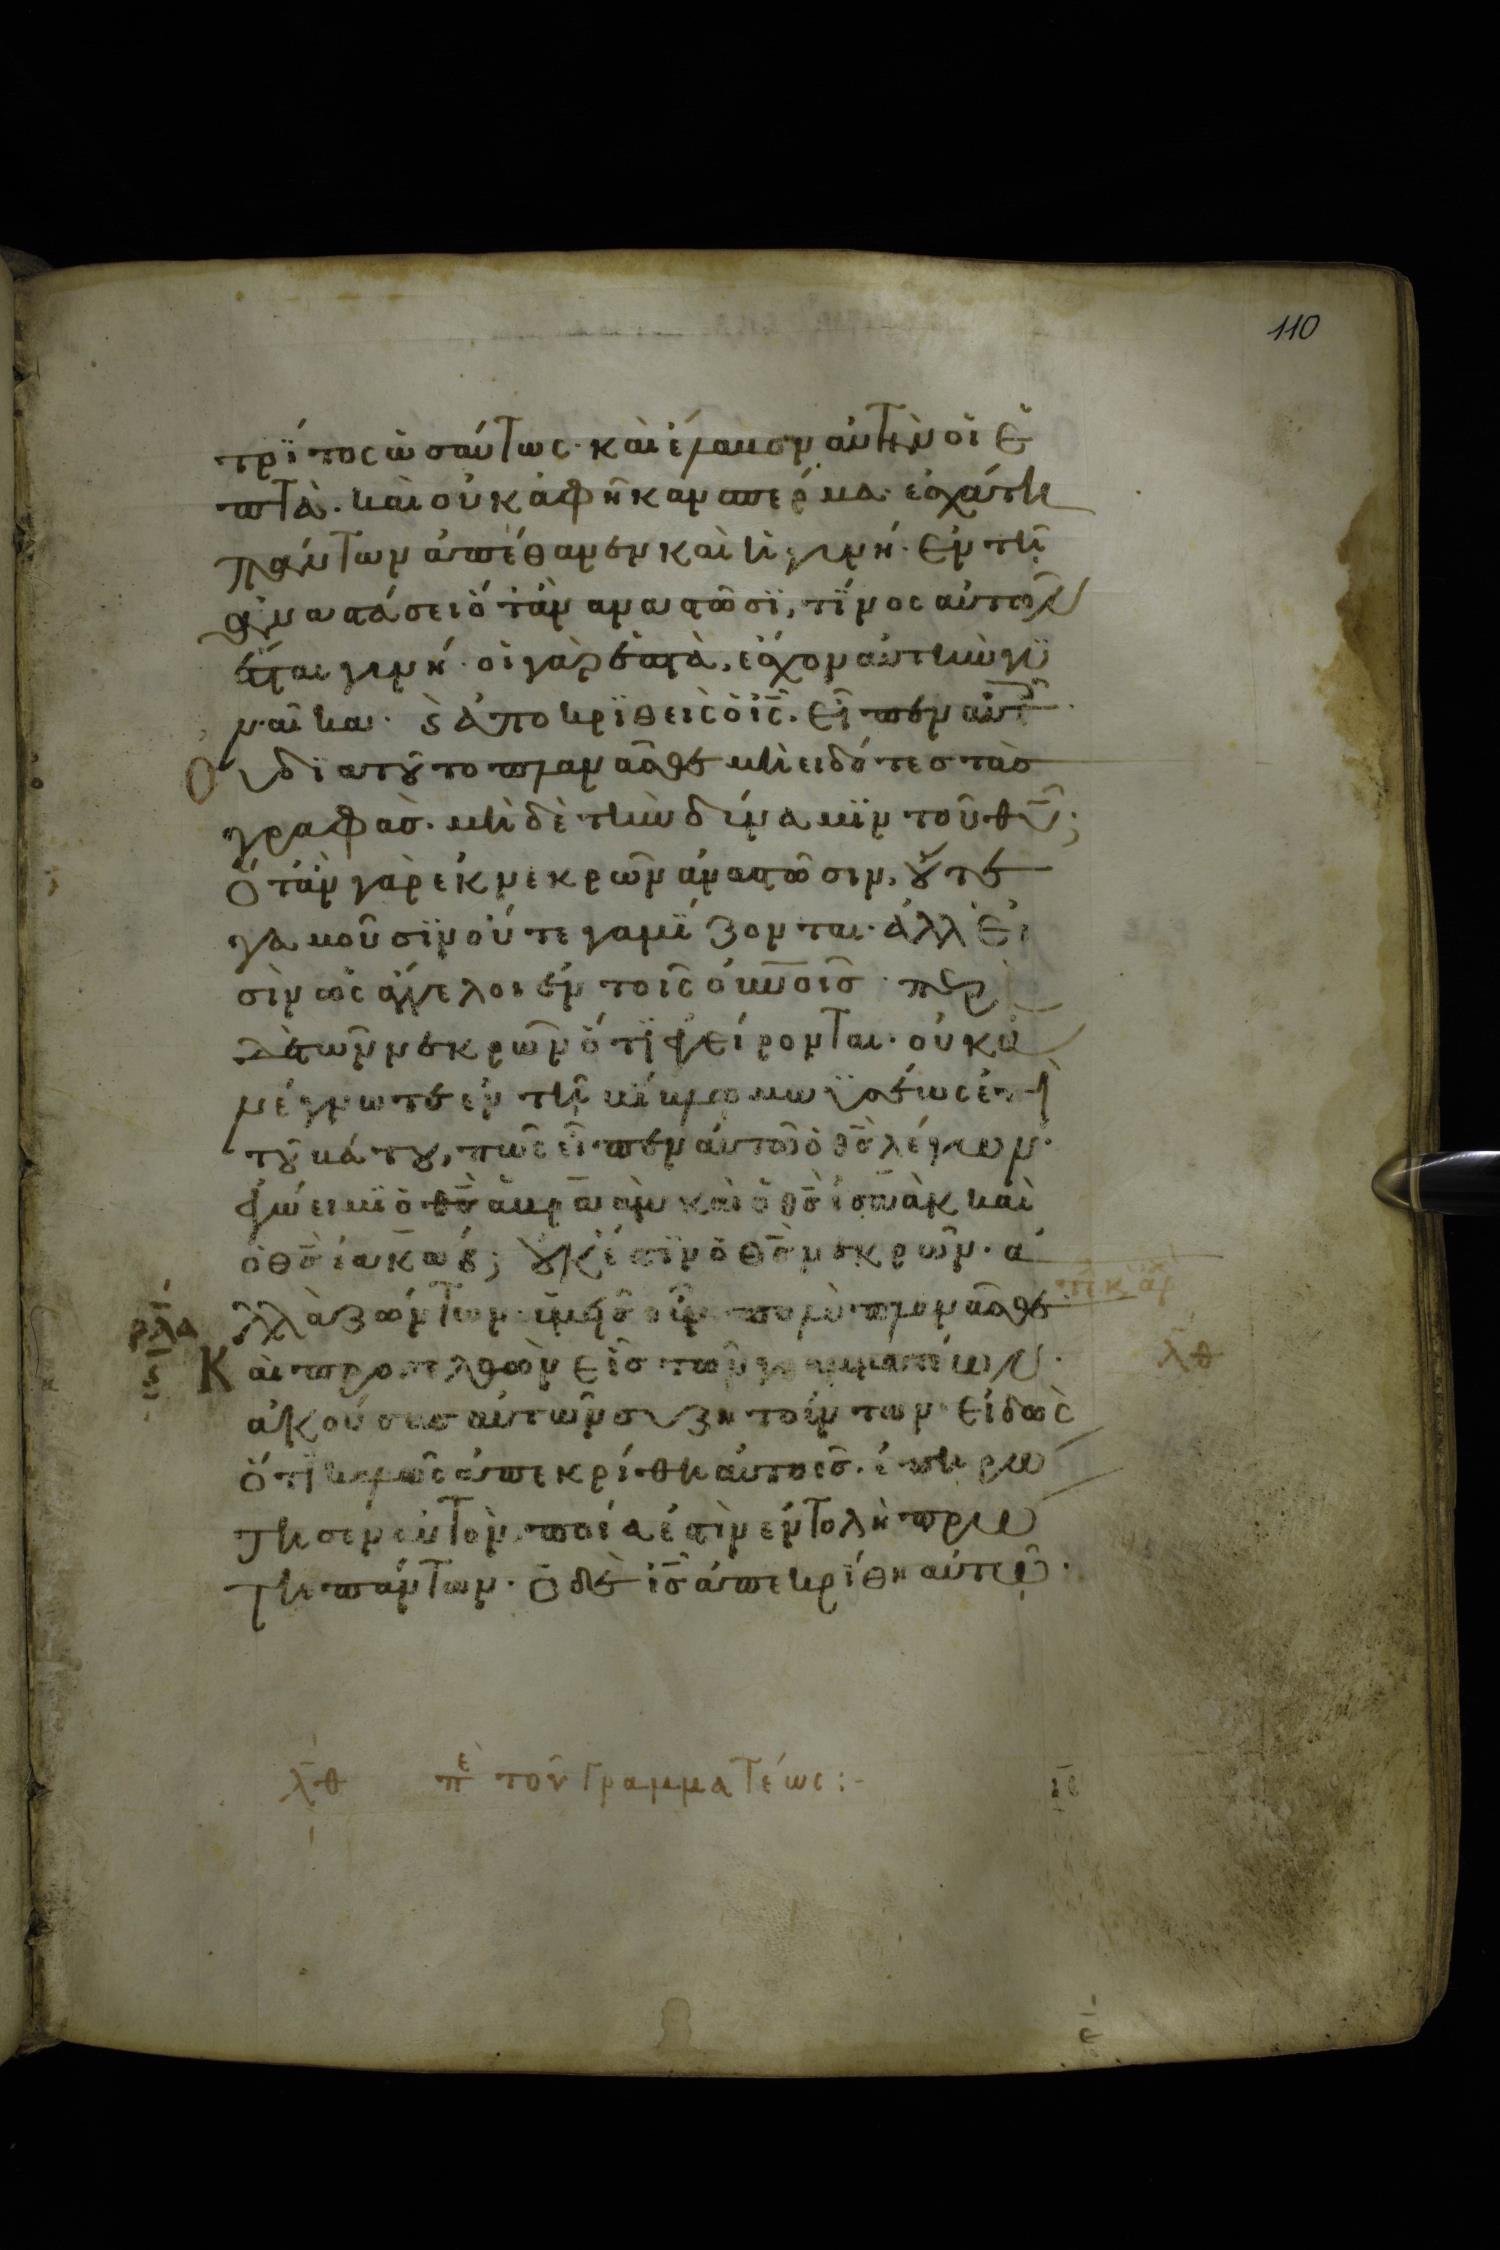 110
τρίτος ὡσαύτως· καὶ ἔλαβον αὐτὴν οἱ ἑ
πτὰ· καὶ οὐκ ἀφῆκαν σπέρμα· ἐσχάτη
πάντων ἀπέθανεν καὶ ἡ γυνή· ἐν τῆ
ἀναστάσει ὅταν ἀναστῶσϊ, τίνος αὐτῶν
ἔσται γυνή· οἱ γὰρ ἑπτὰ, ἔσχον αὐτὴν γυ
ναῖκα· ϛ ἀποκριθεὶς ὁ ις̅· εἶπεν αὐτ
Οὐ διατοῦτο πλανᾶσθε μὴ ειδότες τὰς
γραφὰς· μὴ δὲ τὴν δύναμϊν τοῦ θυ̅;
Ὅταν γὰρ ἐκ νεκρῶν ἀναστῶσιν, οὔτε
γαμοῦσϊν οὔτε γαμΐζονται· ἀλλ εἰ
σὶν ὡς ἄγγελοι ἐν τοῖς ουνοις περὶ
δὲ τῶν νεκρῶν ὅτι ἐγείρονται· οὐκ ἀ
νέγνωτε ἐν τῆ βίβλω μωϋσέως ἐπὶ
τοῦ βάτου, πῶς εἶπεν αὐτῶ ὁ θς̅ λέγων·
ἐγώ ειμϊ ὁ θς̅ ἀβρααμ καὶ ὁ θς̅ ἰσαὰκ καὶ
ὁ θς̅ ἰακώβ; οὐκ ἔστϊν ὁ θς̅ νεκρῶν· ἀ
λλὰ ζώντων· ὑμεῖς οὖν πολὺ πλανᾶσθε
ρλα
ϛ
λθ
Καὶ προσελθὼν εἷς τῶν γραμματέων·
ἀκούσας αὐτῶν συζητούντων· εἰδὼς
ὅτι καλῶς ἀπεκρίθη αὐτοῖς· ἐπηρώ
τησεν αὐτὸν, ποία ἐστὶν ἐντολὴ πρώ
τη πάντων· ὁ δὲ ις̅ ἀπεκρίθη αὐτῶ·
λθ πε τοῦ Γραμματέως:-